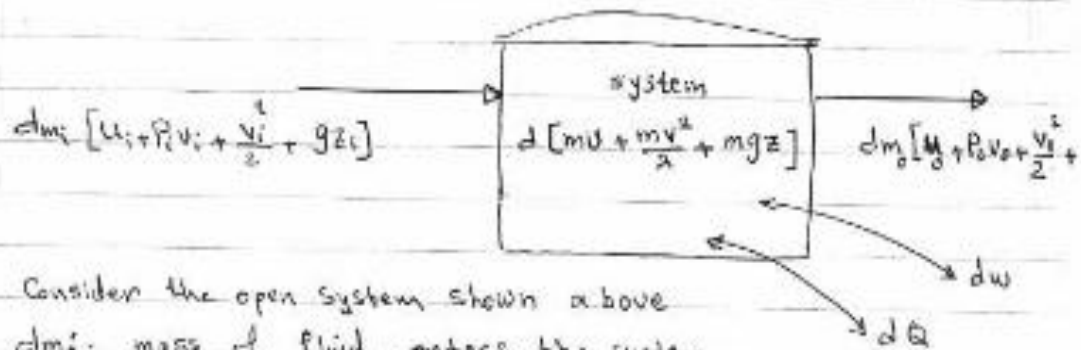 system
dmᵢ [uᵢ + Pᵢvᵢ + vᵢ²/2 + gzᵢ]
d [mU + mv²/2 + mgz]
dm₀ [u₀ + P₀v₀ + v₀²/2 +
dw
dQ
Consider the open system shown above
dmi: mass of fluid enters the syste